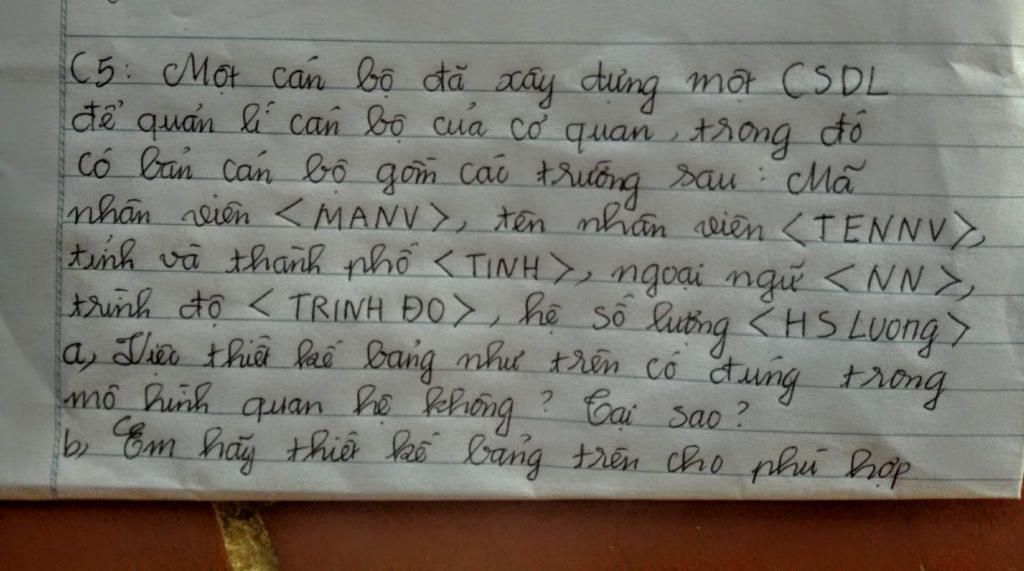 C5: Một cán bộ đã xây dựng một CSDL
để quản lí cán bộ của cơ quan, trong đó
có bản cán bộ gồm các trường sau: Mã
nhân viên <MANV>, tên nhân viên <TENNV>,
tỉnh và thành phố <TINH>, ngoại ngữ <NN>,
trình độ <TRINH ĐO>, hệ số lương <HS Luong>
a, Việc thiết kế bảng như trên có đúng trong
mô hình quan hệ không? Tại sao?
b, Em hãy thiết kế bảng trên cho phù hợp